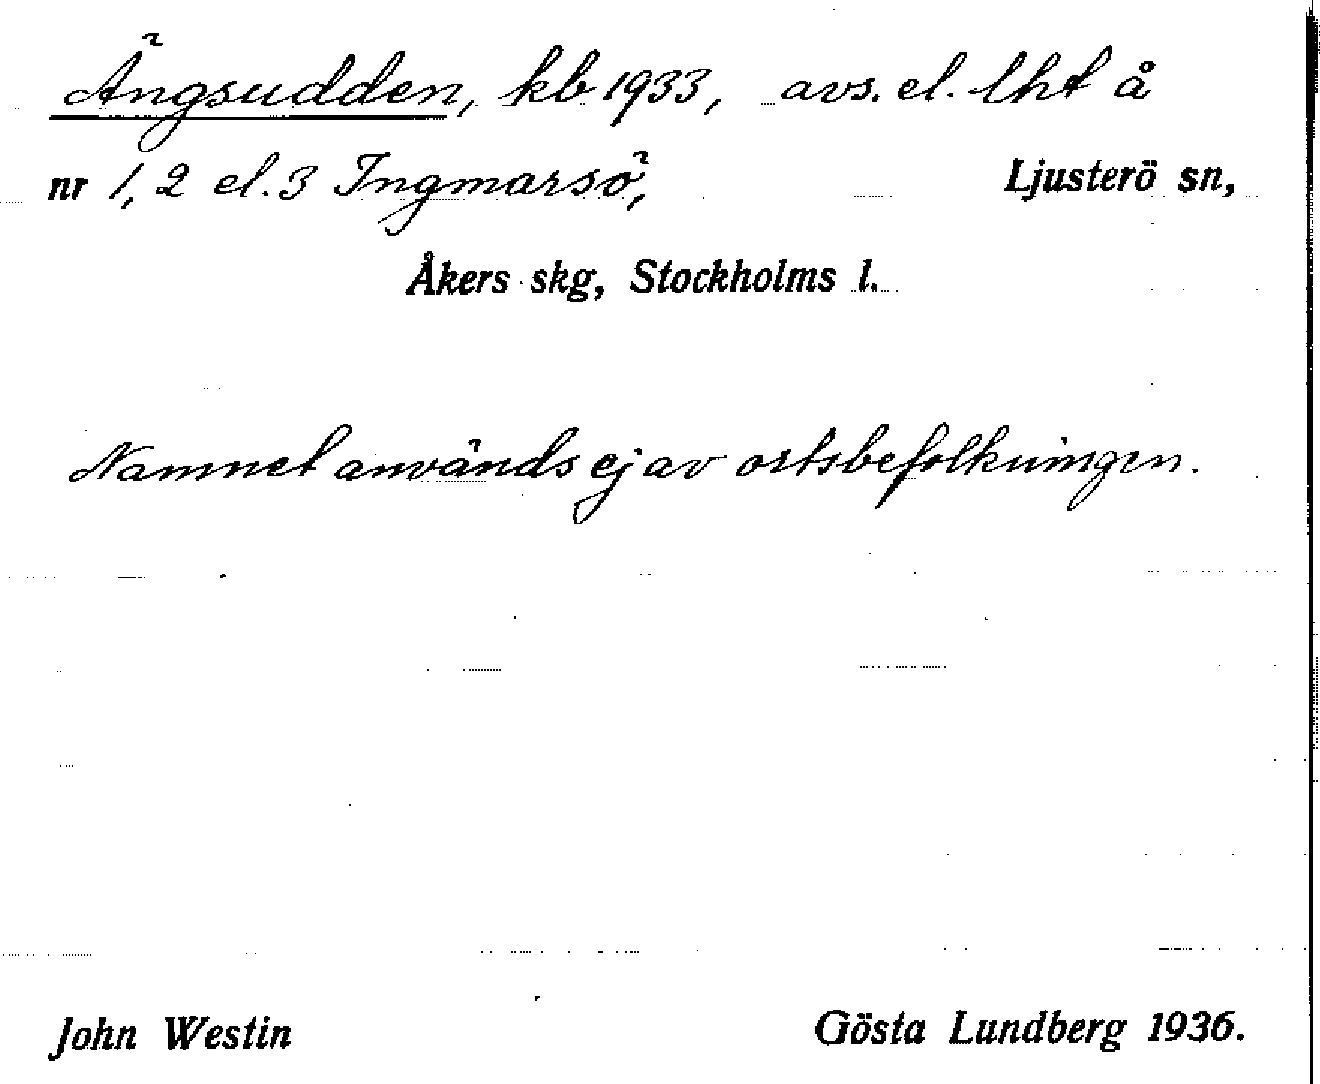 Ängsudden, kb 1933, avs. el. lht å
nr 1, 2 el. 3 Ingmarsö, Ljusterö sn,
Åkers skg, Stockholms l.
Namnet används ej av ortsbefolkningen.
John Westin Gösta Lundberg 1936.